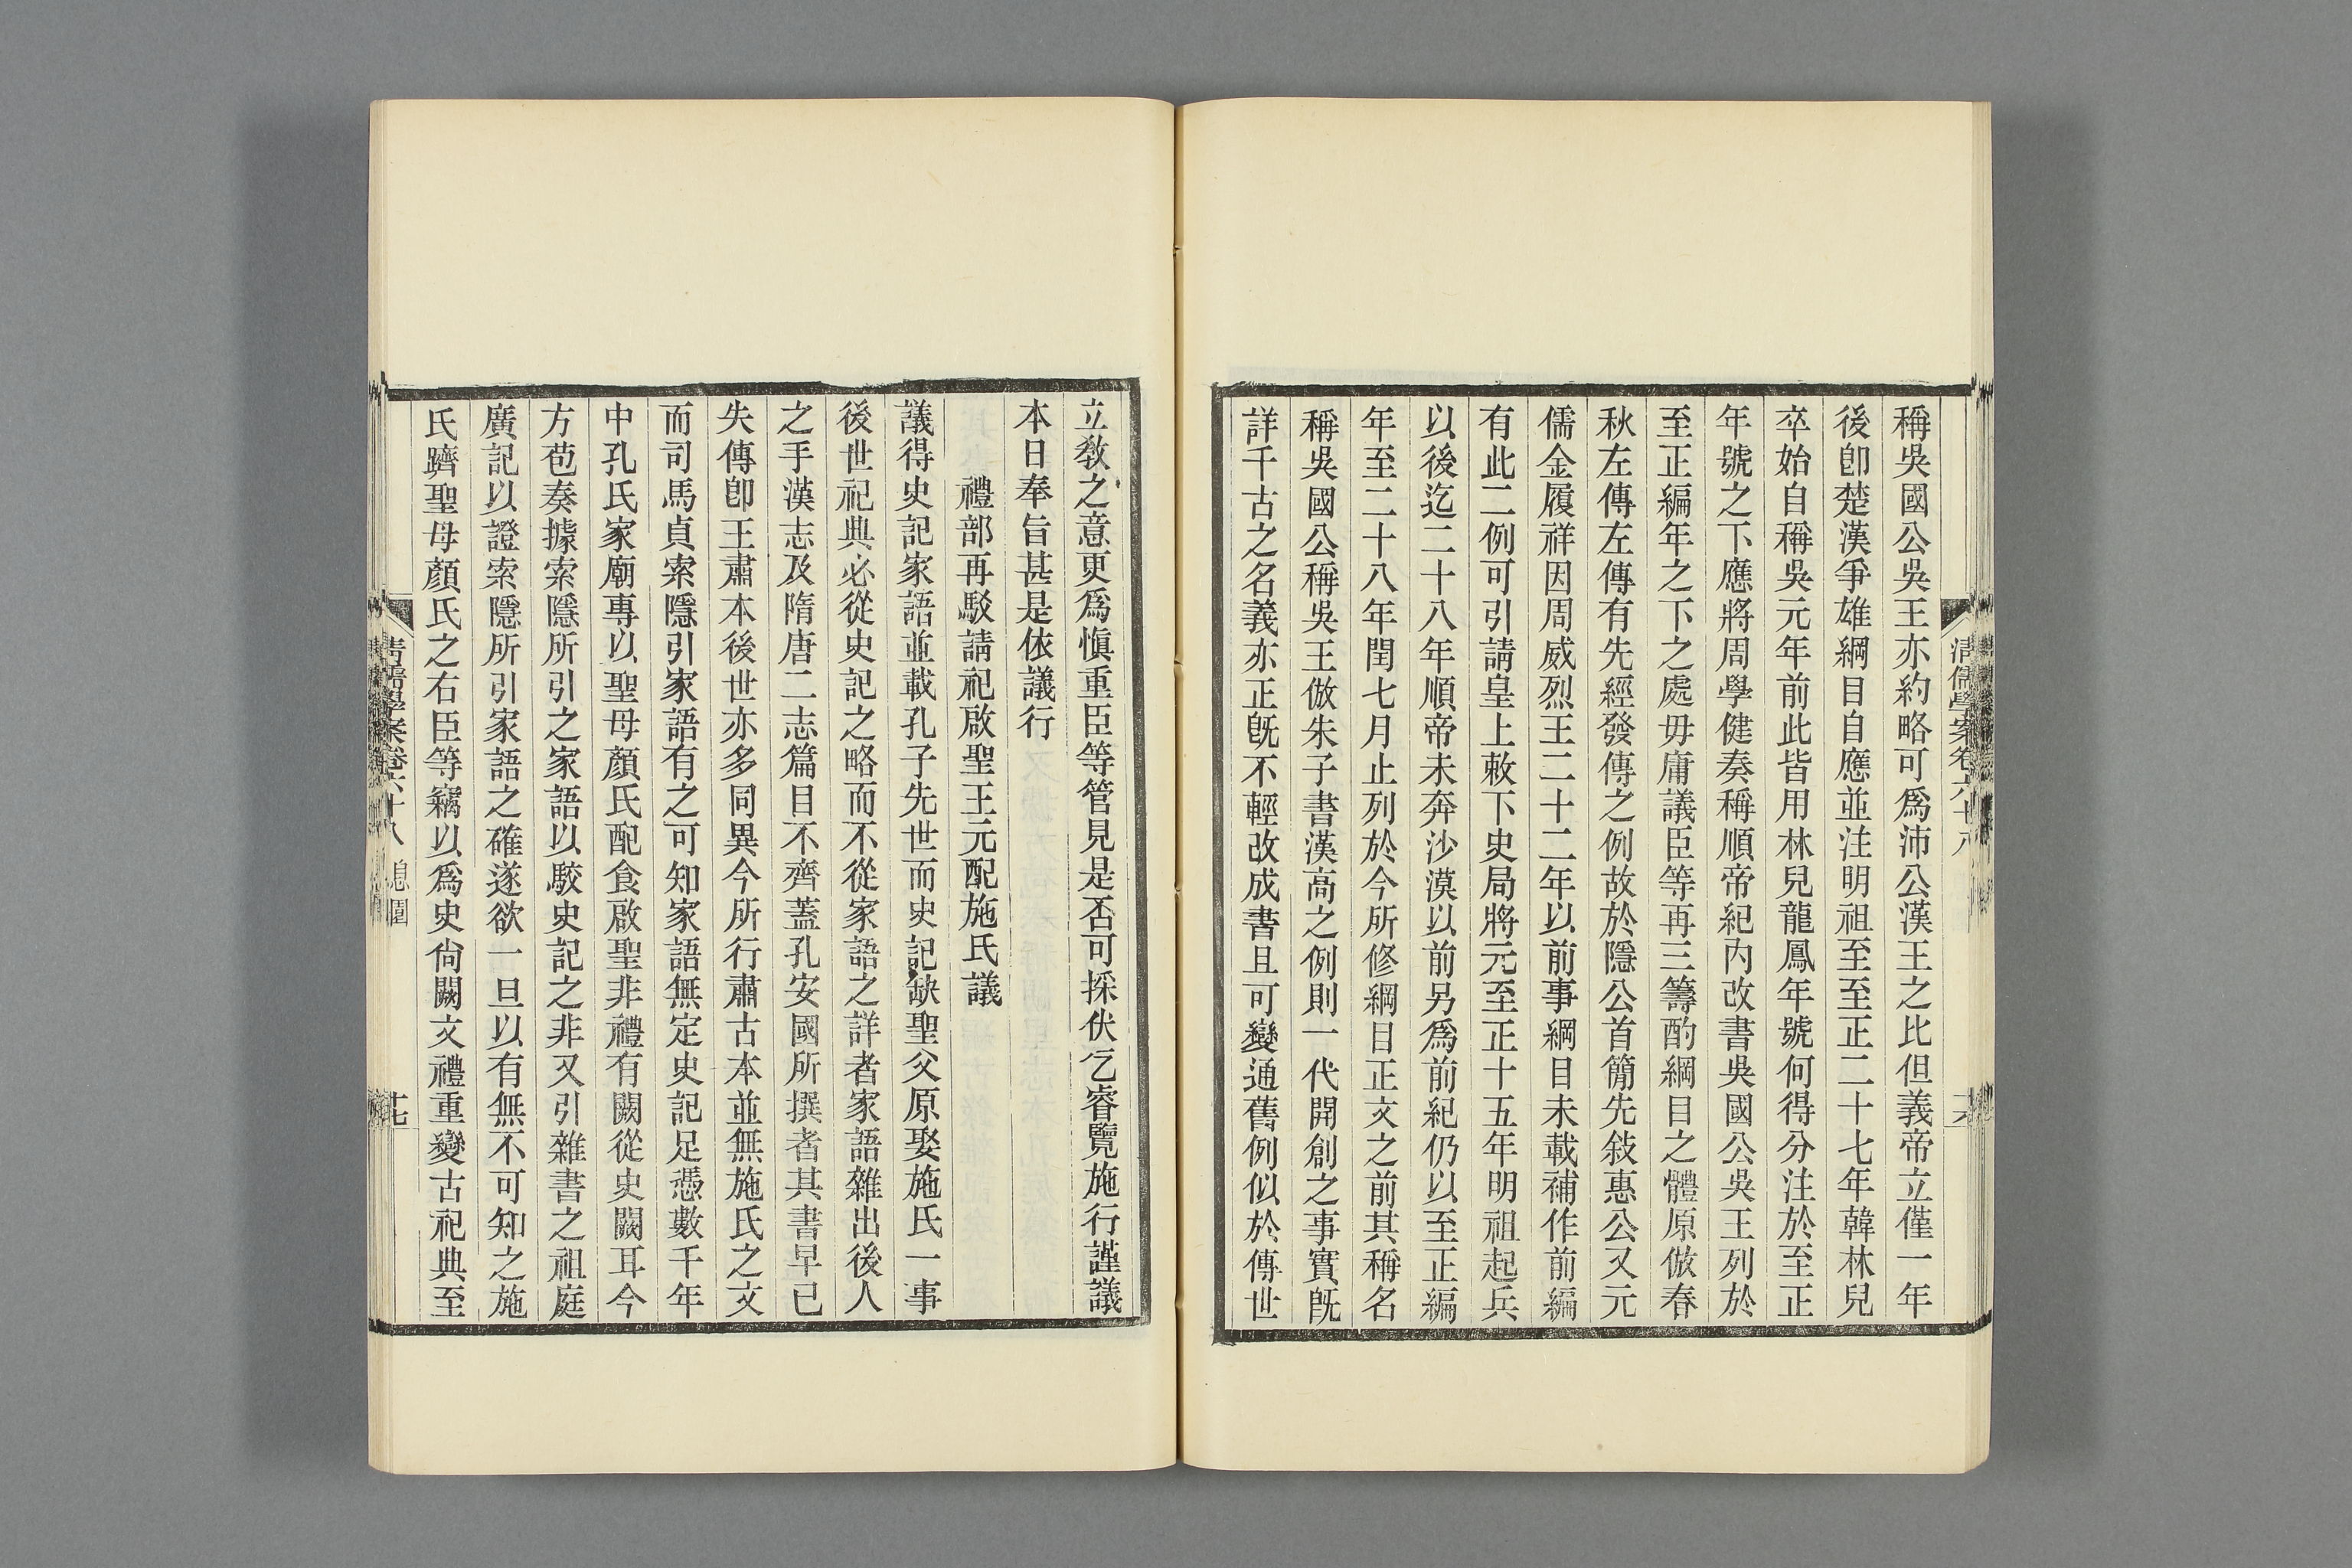 清儒學案卷六十八
十六
稱吳國公吳王亦約略可爲沛公漢王之比但義帝立僅一年
後卽楚漢爭雄綱目自應並注明祖至至正二十七年韓林兒
卒始自稱吳元年前此皆用林兒龍鳳年號何得分注於至正
年號之下應將周學健奏稱順帝紀內改書吳國公吳王列於
至正編年之下之處毋庸議臣等再三籌酌綱目之體原倣春
秋左傳左傳有先經發傳之例故於隱公首簡先敍惠公又元
儒金履祥因周威烈王二十二年以前事綱目未載補作前編
有此二例可引請皇上敕下史局將元至正十五年明祖起兵
以後迄二十八年順帝未奔沙漠以前另爲前紀仍以至正編
年至二十八年閏七月止列於今所修綱目正文之前其稱名
稱吳國公稱吳王倣朱子書漢高之例則一代開創之事實旣
詳千古之名義亦正旣不輕改成書且可變通舊例似於傳世
立敎之意更爲愼重臣等管見是否可採伏乞睿覽施行謹議
本日奉旨甚是依議行
禮部再駁請祀啟聖王元配施氏議
議得史記家語並載孔子先世而史記缺聖父原娶施氏一事
後世祀典必從史記之略而不從家語之詳者家語雜出後人
之手漢志及隋唐二志篇目不齊蓋孔安國所撰者其書早已
失傳卽王肅本後世亦多同異今所行肅古本並無施氏之文
而司馬貞索隱引家語有之可知家語無定史記足憑數千年
中孔氏家廟專以聖母顏氏配食啟聖非禮有闕從史闕耳今
方苞奏據索隱所引之家語以駮史記之非又引雜書之祖庭
廣記以證索隱所引家語之確遂欲一旦以有無不可知之施
氏躋聖母顏氏之右臣等竊以爲史尙闕文禮重變古祀典至
清儒學案卷六十八 息園
十七